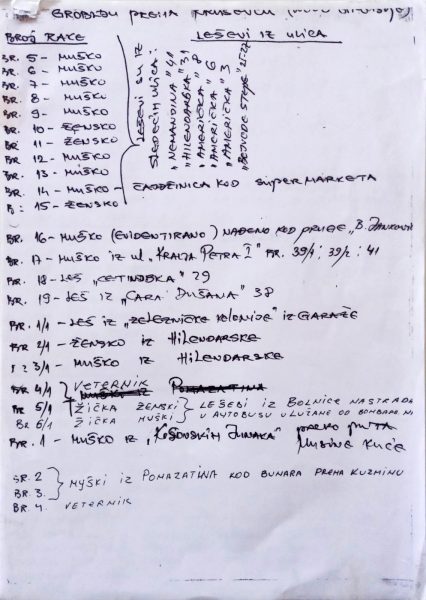 GROBLJU PREMA KRUŠEVCU
BROJ RAKE LEŠEVI IZ ULICA
BR. 5 - MUŠKO
BR. 6 - MUŠKO
BR. 7 - MUŠKO
BR. 8 - MUŠKO
BR. 9 - MUŠKO
BR. 10 - ŽENSKO
BR. 11 - ŽENSKO
BR. 12 - MUŠKO
BR. 13 - MUŠKO
BR. 14 - MUŠKO - ZAOBEINICA KOD SUPERMARKETA
B: 15 - ŽENSKO
LEŠEVI SU IZ
SLEDEĆIH ULICA:
"NEMANJINA" 41
"HILENDARSKA" 31
"AMERIČKA" 8
"AMERIČKA" 6
"AMERIČKA" 3
"VOJVODE STEPE" 25-27
BR. 16 - MUŠKO (EVIDENTIRANO) NAĐENO KOD PRUGE, B. JANKOVIĆ
BR. 17 - MUŠKO IZ UL "KRALJA PETRA I" BR. 39/1; 39/2; 41
BR. 18 - LEŠ "CETINJSKA" 29
BR. 19 - LEŠ IZ "CARA DUŠANA" 38
BR. 1/1 - LEŠ IZ "ŽELEZNIČKE KOLONIJE" IZ GARAŽE
BR 2/1 - ŽENSKO IZ HILENDARSKE
3/1 - MUŠKO IZ HILENDARSKE
BR 4/1 VETERNIK
MUŠKI IZ POMAZATINA
BR 5/1 ŽIČKA ŽENSKI LEŠEVI IZ BOLNICE NASTRADA
BR 6/1 ŽIČKA MUŠKI U AUTOBUSU U LUŽANE OD BOMBARD.
BR. 1 - MUŠKO IZ "KOSOVSKIH JUNAKA" PREKO PUTA
KUĆE
BR. 2 MUŠKI IZ POMAZATINA KOD BUNARA PREMA KUZMINU
BR. 3
BR. 4. VETERNIK